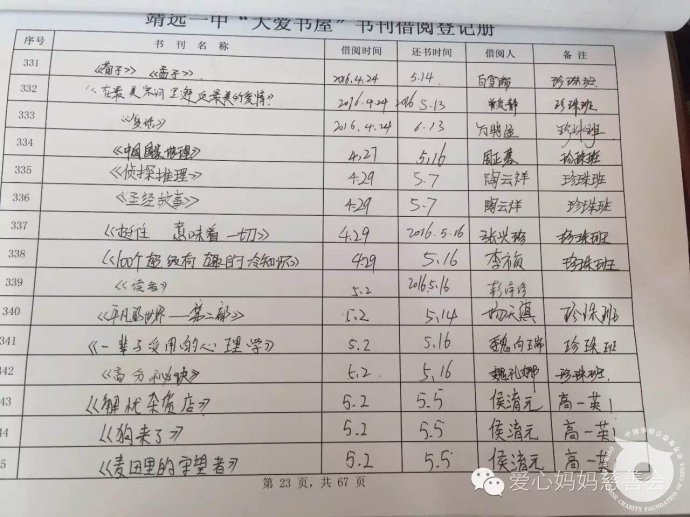 靖远一中“大爱书屋”书刊借阅登记册
序号 书刊名称 借阅时间 还书时间 借阅人 备注
331 《荀子》《孟子》 2016.4.24 5.14 珍珠班
332 《在最美宋词里邂逅最美的爱情》 2016.4.24 2016 5.13 珍珠班
333 2016.4.24 6.13 珍珠班
334 《中国国家地理》 4.27 5.16 珍珠班
335 《侦探推理》 4.29 5.7 陶云祥 珍珠班
336 《圣经故事》 4.29 5.7 陶云祥 珍珠班
337 意味着一切》 4.29 2016.5.16 张兴珍 珍珠班
338 《100个 冷知识》 4.29 5.16 李祯 珍珠班
339 《读者》 5.2 2016.5.16
340 《平凡的世界—第二部》 5.2 5.14 珍珠班
341 《一辈子受用的心理学》 5.2 5.16 珍珠班
342 《高分秘诀》 5.2 5.16 珍珠班
43 《解忧杂货店》 5.2 5.5 侯清元 高一英1
44 《狗来了》 5.2 5.5 侯清元 高一英1
5 《麦田里的守望者》 5.2 5.5 侯清元 高一英
第 23 页，共 67 页
爱心妈妈慈善会